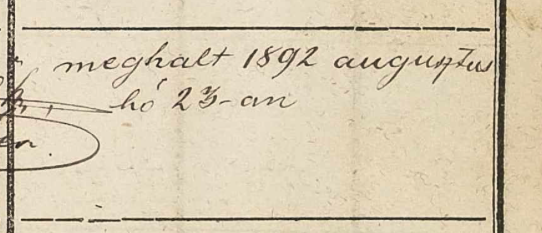 meghalt 1892 augusztus
hó 23-an